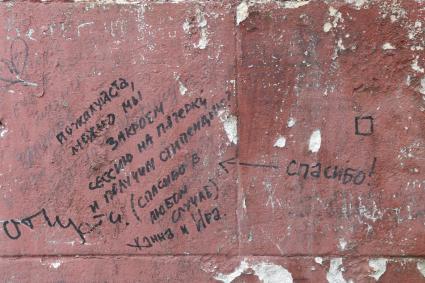 пожалуйста,
можно мы
закроем
сессию на пятерки,
и получим стипендию.
(спасибо в
любом
случае)
Ханна и Ира.
спасибо!